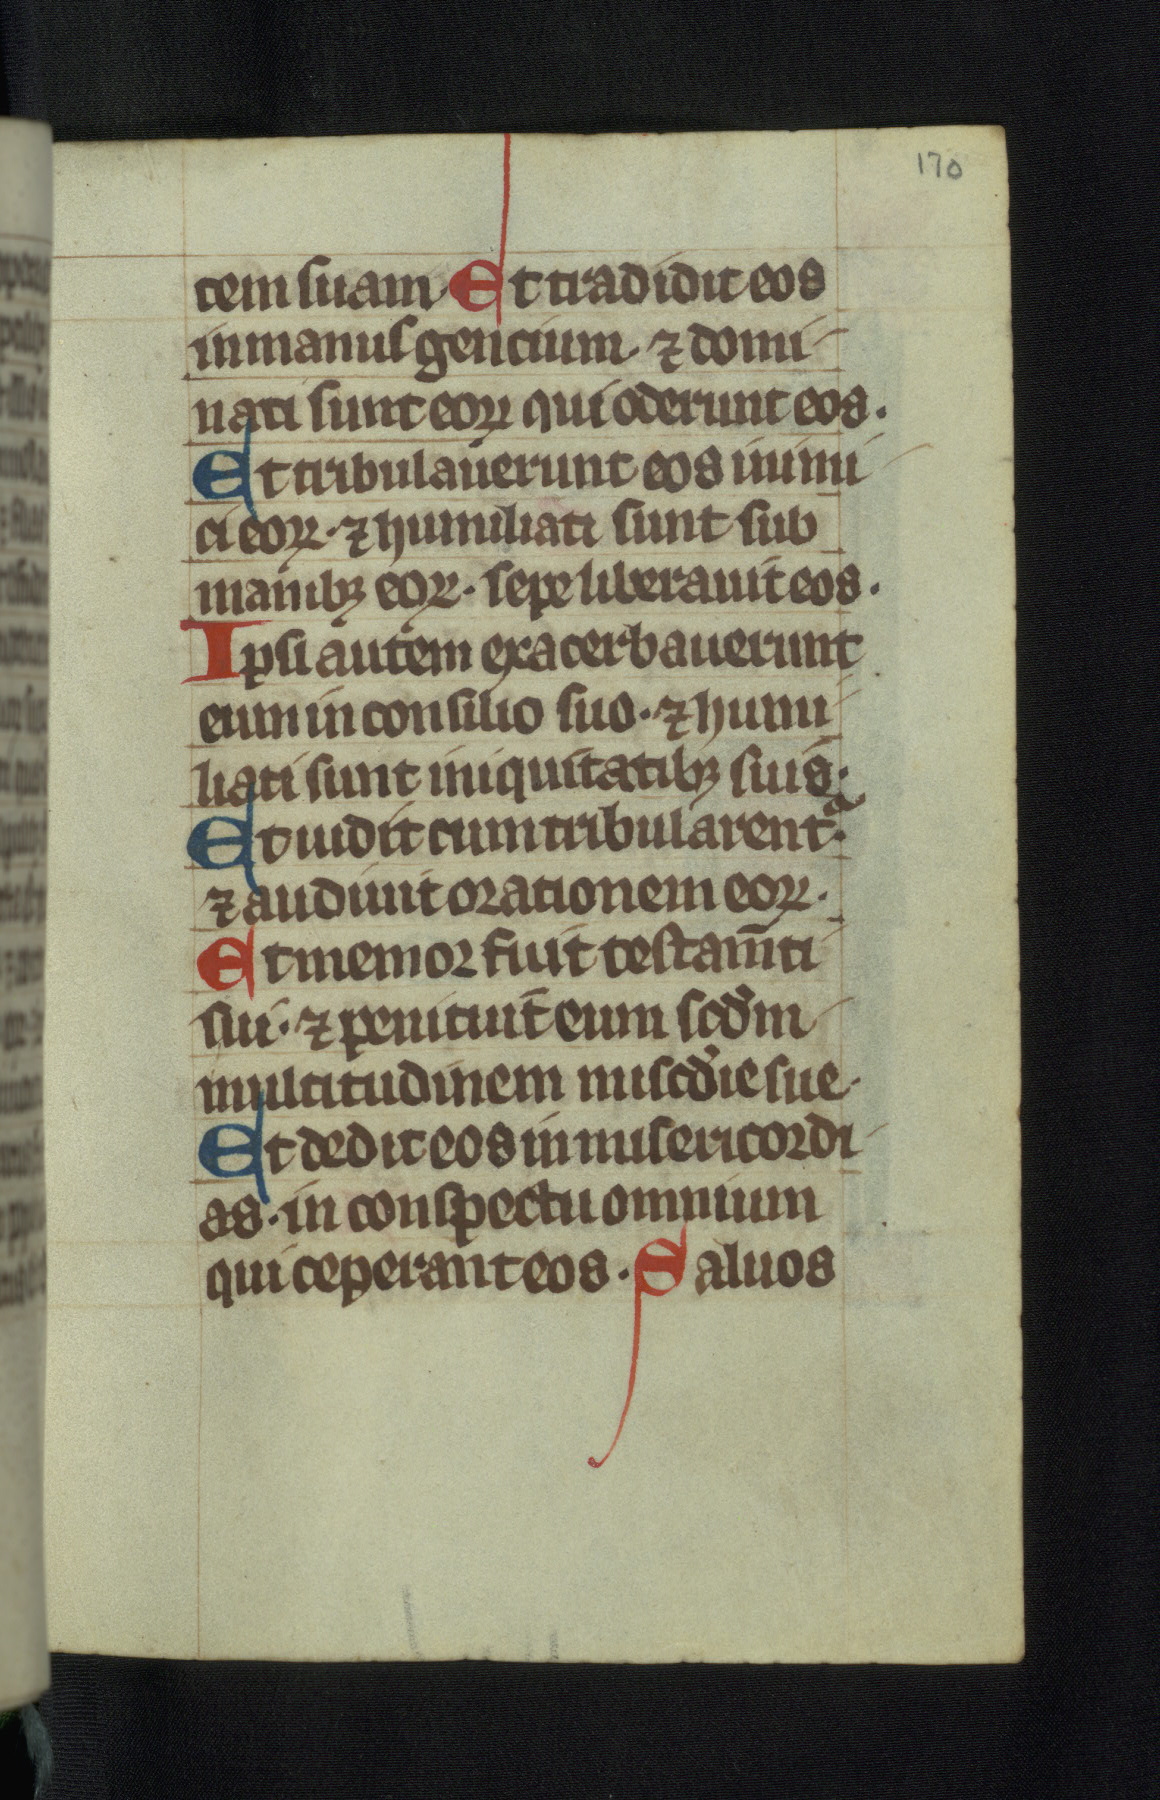 170
tem suam. Et tradidit eos
in manus gencium. ⁊ domi-
nati sunt eoꝝ qui oderunt eos.
Et tribulauerunt eos inimi-
ci eoꝝ. ⁊ humiliati sunt sub
manibꝫ eoꝝ. sepe liberauit eos.
Ipsi autem exacerbauerunt
eum in consilio suo. ⁊ humi-
liati sunt iniquitatibꝫ suis.
Et uidit cum tribularentᷓ.
⁊ audiuit orationem eoꝝ.
Et memor fuit testam̄ti
sui. ⁊ penituit eum scd̓m
multitudinem miscd̓ie sue.
Et dedit eos in misericordi-
as. in conspectu omnium
qui ceperant eos. Saluos